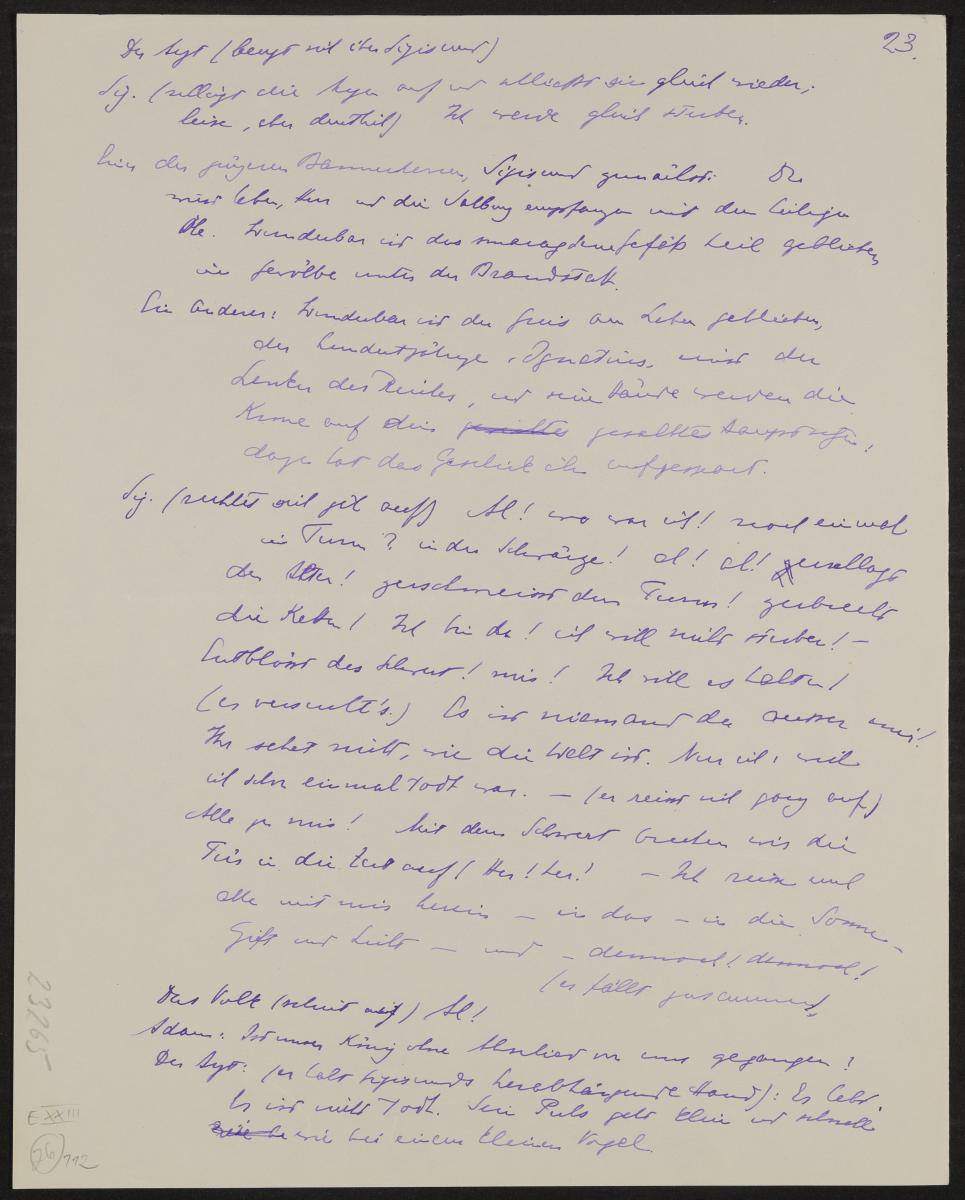 23.
Der Arzt (beugt sich über Sigismund)
Sig. (schlägt die Augen auf und schließt sie gleich wieder;
leise, aber deutlich) Ich werde gleich sterben.
Einer der jüngeren Bannerherren, Sigismund zunächst: Du
wirst leben, Herr und die Salbung empfangen mit dem heiligen
Öle. Wunderbar ist das smaragdene Gefäß heil geblieben
im Gewölbe unter der Brandstatt.
Ein Anderer: Wunderbar ist der Greis am Leben geblieben,
der hundertjährige Ignatius, einst der
Lenker des Reiches, und seine Hände werden die
Krone auf dein gesalbtes Haupt setzen,
dazu hat das Geschick ihn aufgespart.
Sig. (richtet sich jäh auf) Ah! wo war ich! noch einmal
im Turm? in der Schwärze! ah! ah! zerschlagt
den Alten! zerschmeisst den Turm! zerbrecht
die Ketten! Ich bin da! ich will nicht sterben! –
Entblösst das Schwert! mir! Ich will es halten!
(er versucht's.) Es ist niemand da ausser mir!
Ihr sehet nicht, wie die Welt ist. Nur ich, weil
ich schon einmal todt war. – (er reisst sich ganz auf)
Alle zu mir! Mit dem Schwert brechen wir die
Tür in die Zeit auf! Her! her! – Ich reisse euch
alle mit mir herein – in das – in die Sonne –
Gift und Licht – und – dennoch! dennoch!
(er fällt zusammen)
Das Volk (schreit auf) Ah!
Adam: Ist unser König ohne Abschied von uns gegangen?
Der Arzt: (er hält Sigismunds herabhängende Hand): Er lebt.
Er ist nicht todt. Sein Puls geht klein und schnell
wie bei einem kleinen Vogel.
23265
E XXIII
76 112